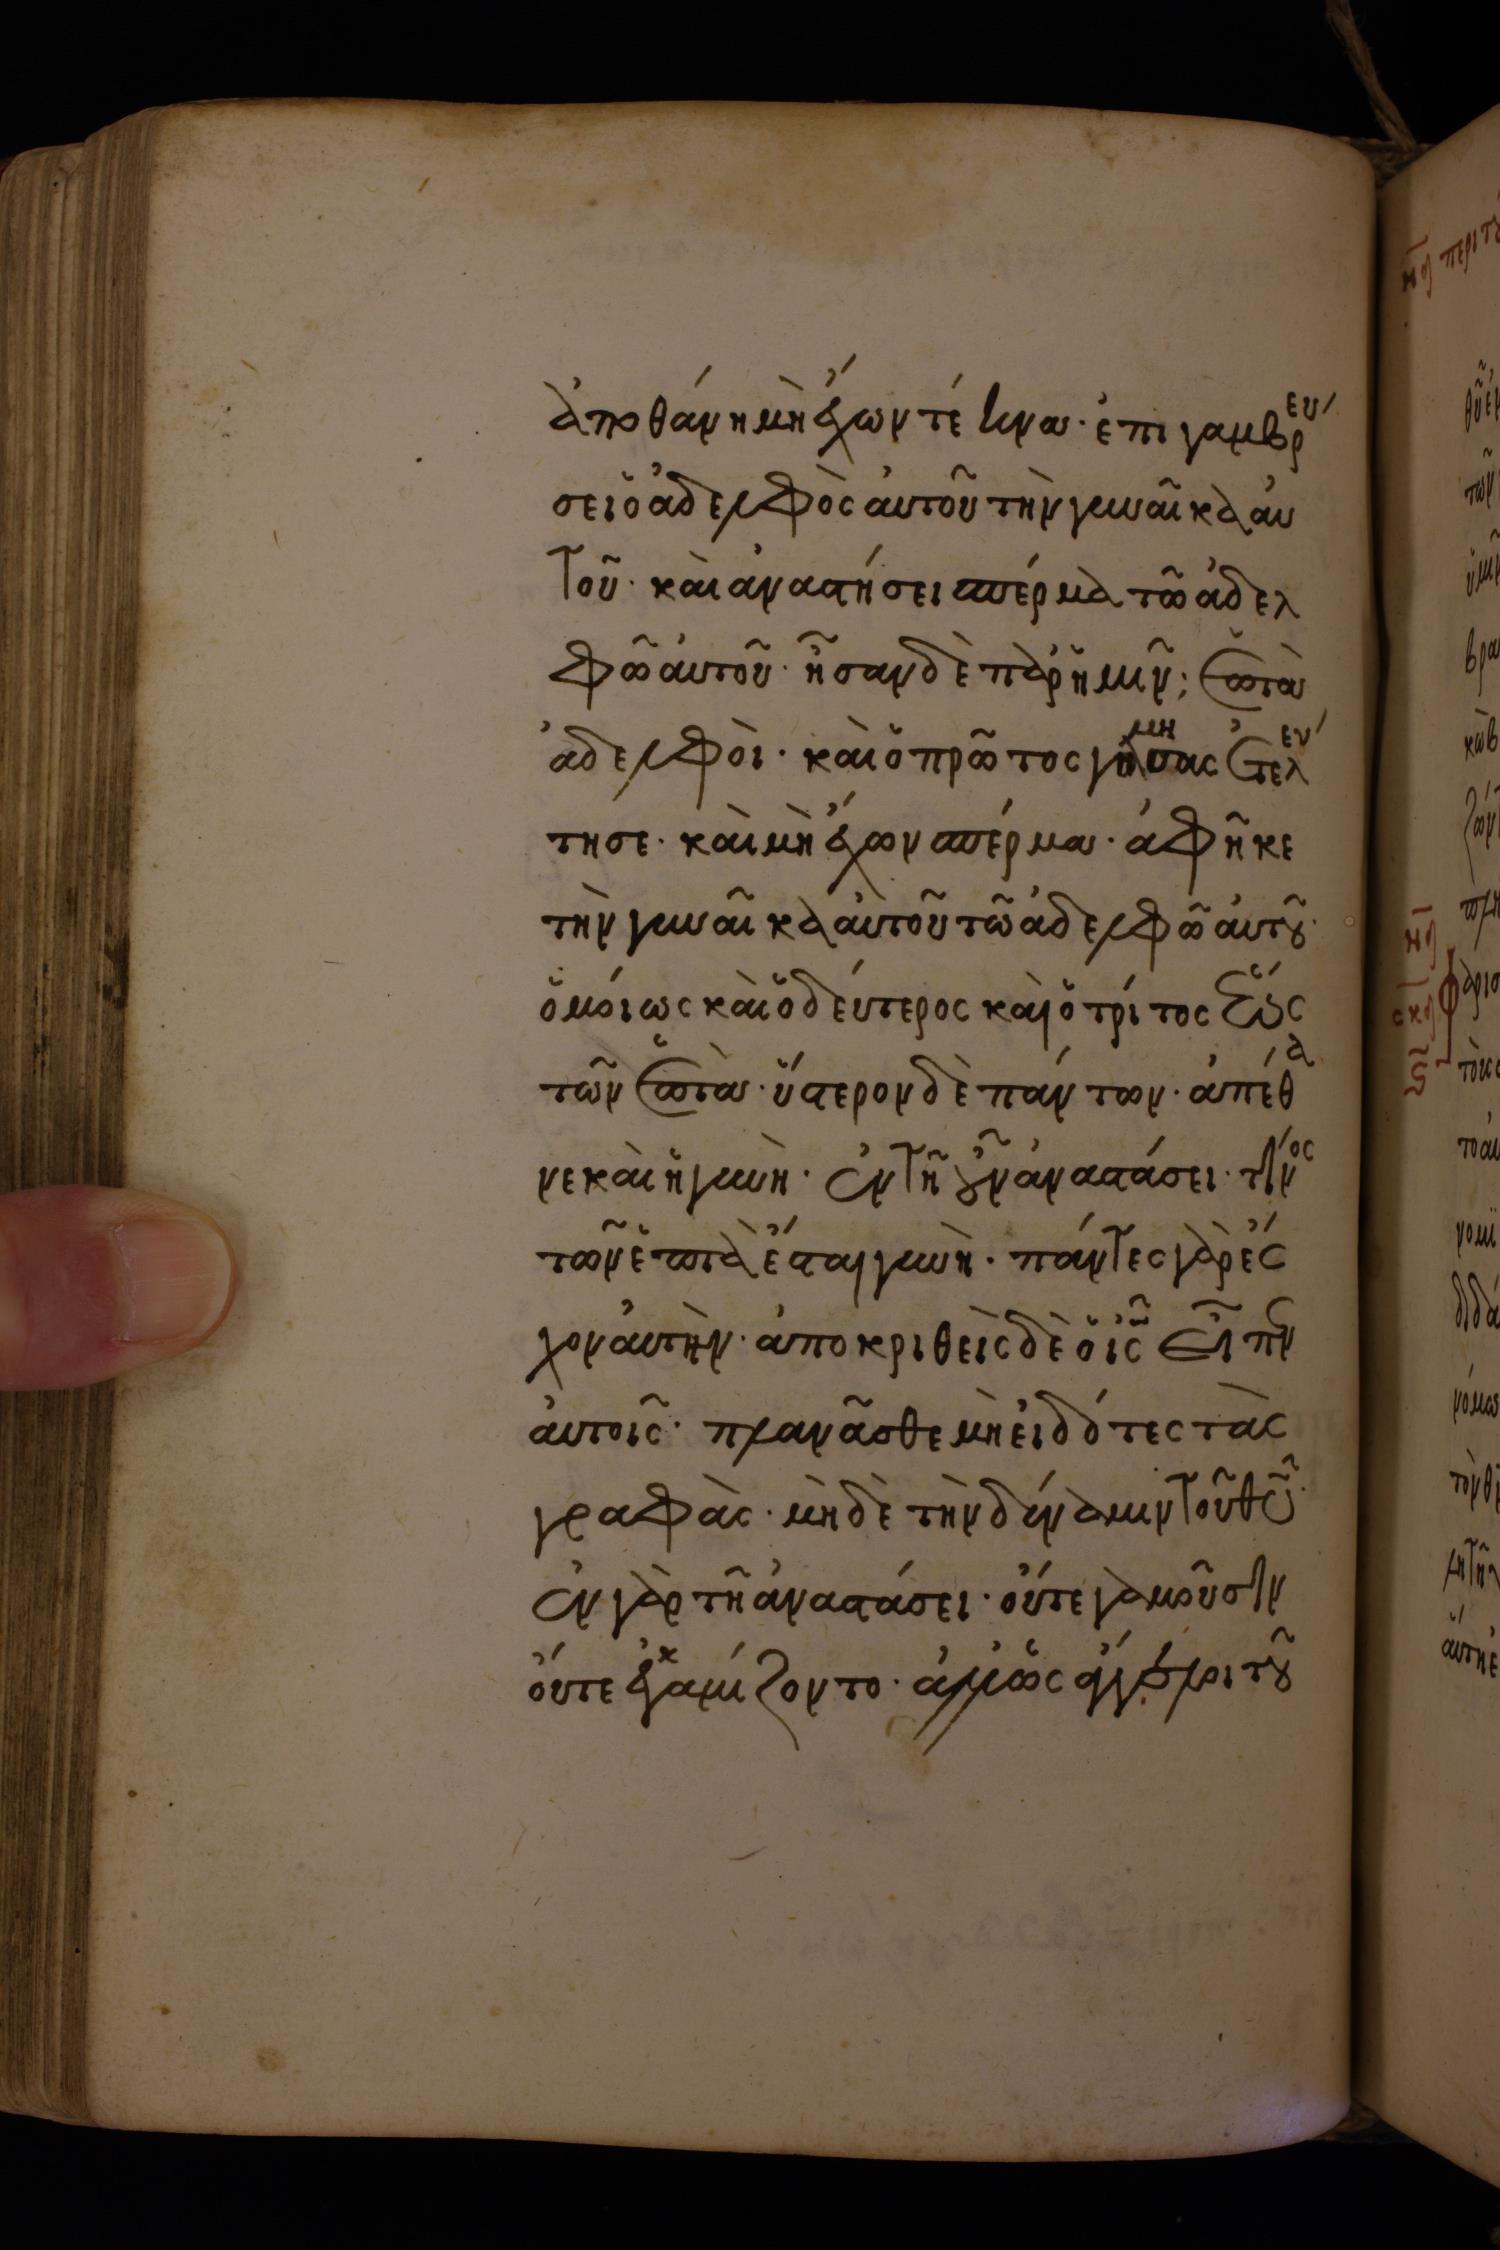 ἀποθάνη μὴ ἔχων τέκνα· ἐπιγαμβρεύ
σει ὁ ἀδελφὸς αὐτοῦ τὴν γυναῖκα αὐ
τοῦ· καὶ ἀναστήσει σπέρμα τῶ ἀδελ
φῶ αὐτοῦ· ἦσαν δὲ παρ' ἡμῖν; ἑπτὰ
ἀδελφοὶ· καὶ ὁ πρῶτος γημησας ἐτελεύ
τησε· καὶ μὴ ἔχων σπέρμα· ἀφῆκε
τὴν γυναῖκα αὐτοῦ τῶ ἀδελφῶ αὐτοῦ·
ὁμοίως καὶ ὁ δεύτερος καὶ ὁ τρίτος ἕως
τῶν ἑπτὰ· ὕστερον δὲ πάντων· ἀπέθα
νε καὶ ἡ γυνὴ· ἐν τῆ οὖν ἀναστάσει· τίνος
τῶν ἑπτὰ ἔσται γυνὴ· πάντες γὰρ ἔσ
χον αὐτὴν· ἀποκριθεὶς δὲ ὁ ἰς εἶπεν
αὐτοῖς· πλανᾶσθε μὴ εἰδότες τὰς
γραφὰς· μὴδὲ τὴν δύναμιν τοῦ θυ·
ἐν γὰρ τῆ ἀναστάσει· οὔτε γαμοῦσιν
οὔτε ἐκγαμίζοντο· ἀλλ' ὡς ἄγγελοι τοῦ